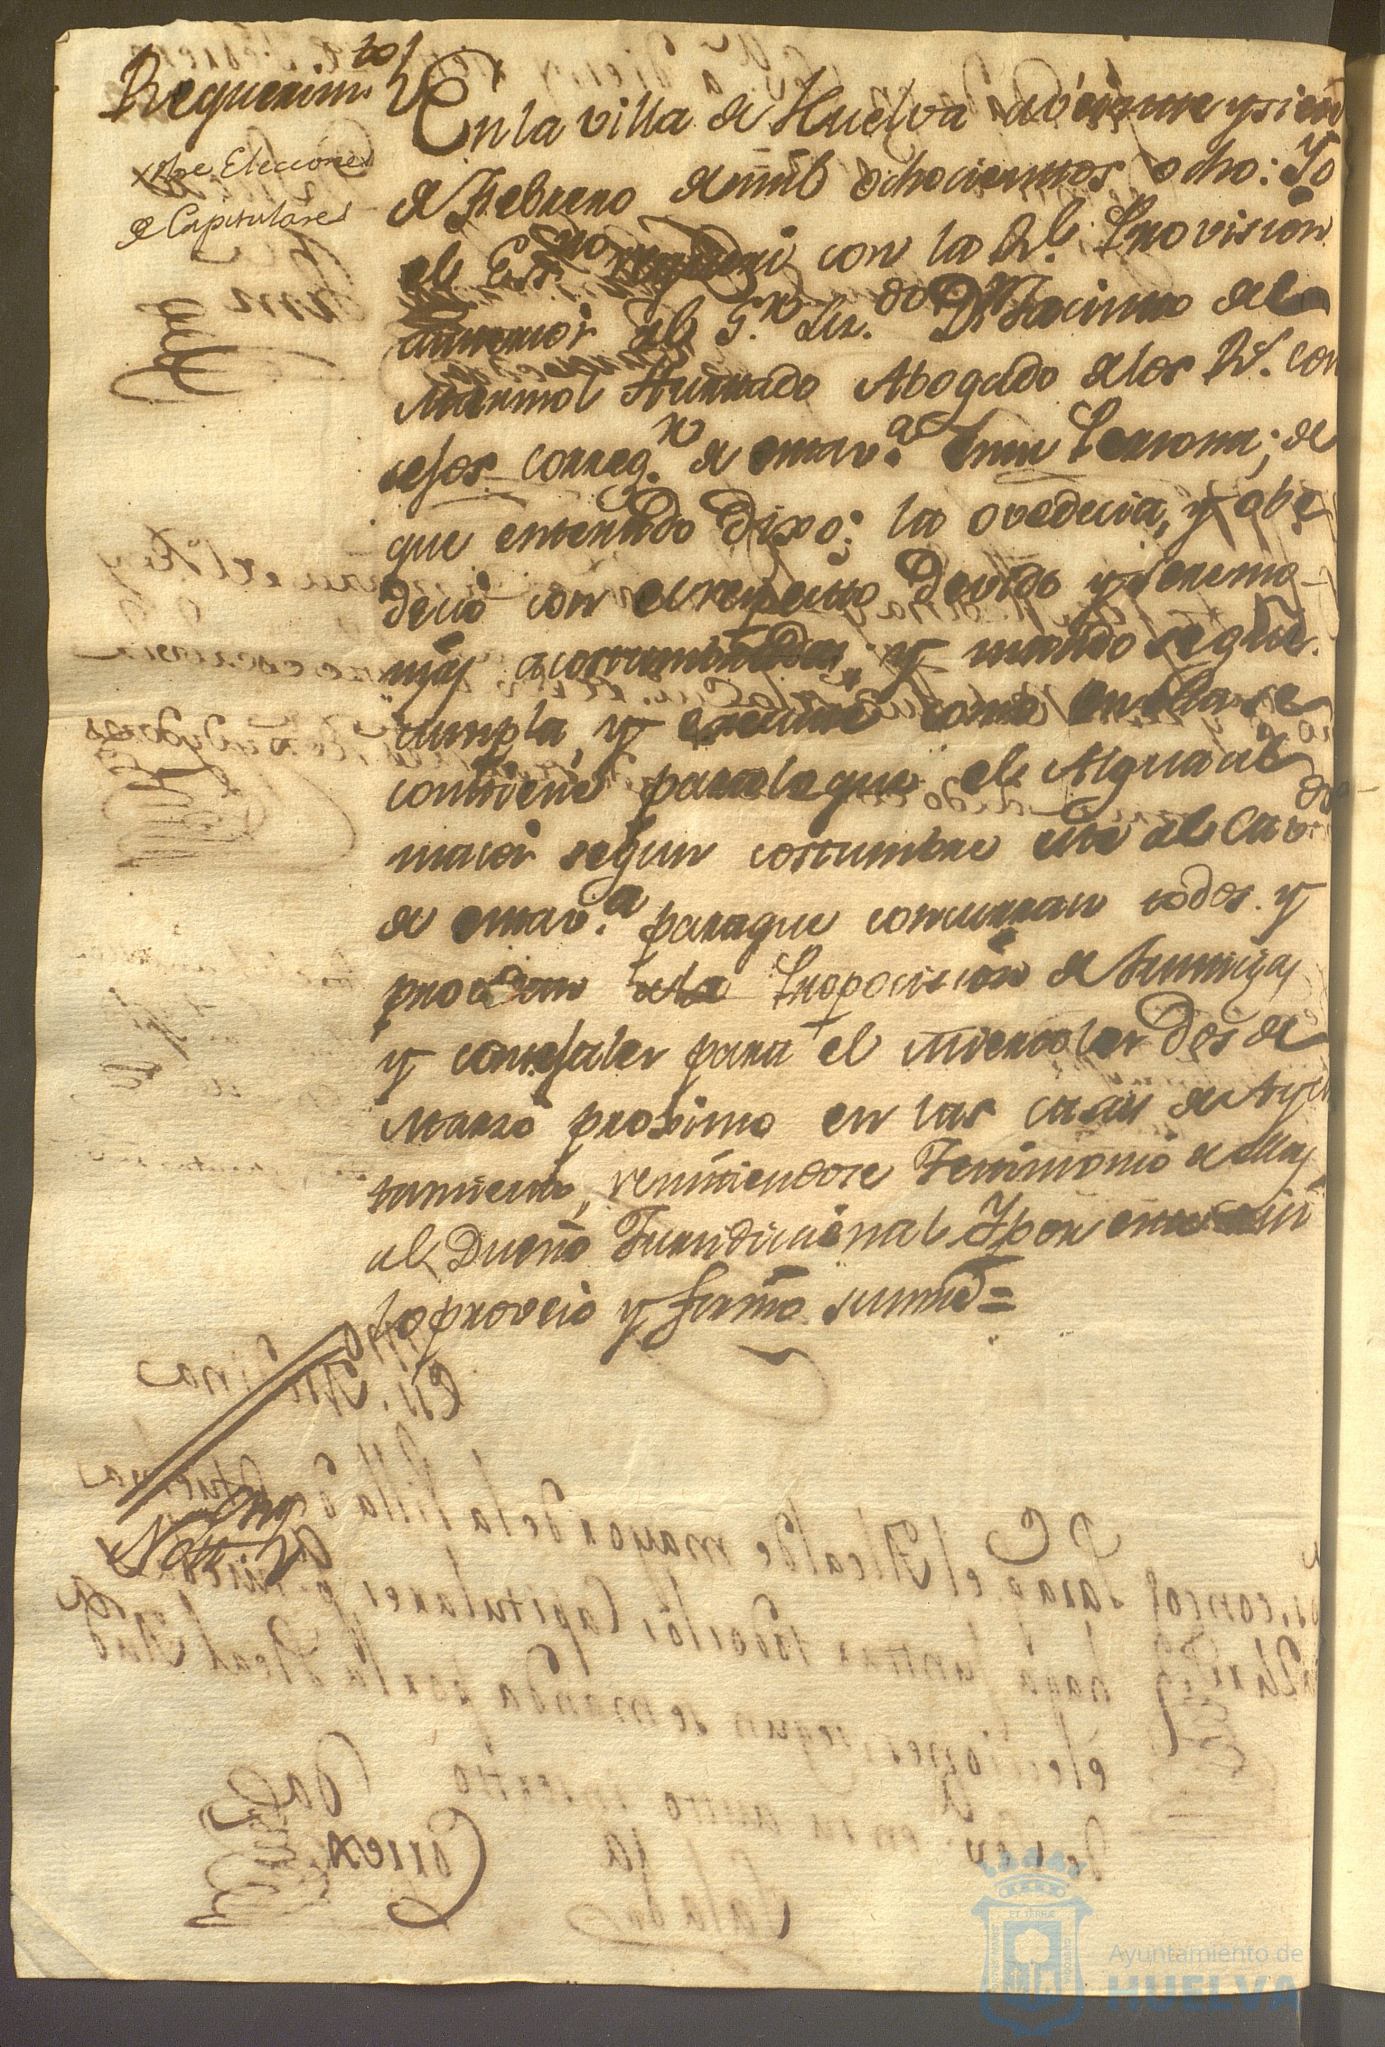 Requerim.to
sobre Elecciones
de Capitulares
En la villa de Huelva a veinte y siete
de Febrero de mil ochocientos ocho: Yo
el Ess.no requeri con la Rl. Provision
anterior al S.r Liz.do Dn Jacinto del
Marmol Hurtado Abogado de los Rs. con
sejos correg.r de esta v.a en su Persona; de
que enterado Dixo: la ovedecia, y obe
decio con el respecto devido y seremo
nias acostumbradas, y mando se gue.
cumpla, y execute como en ella se
contiene para lo que el Alguacil
maior segun costumbre cite al Cavdo
de esta v.a para que concurran todos y
procedan a la Proposicion de Justicias
y consejales para el Miercoles Dos de
Marzo proximo en las casas de Ayun
tamiento, remitiendose Testimonio de ellas
al Dueño Jurisdiccional Y por este
lo proveio y firmo su md =
Ayuntamiento de
HUELVA